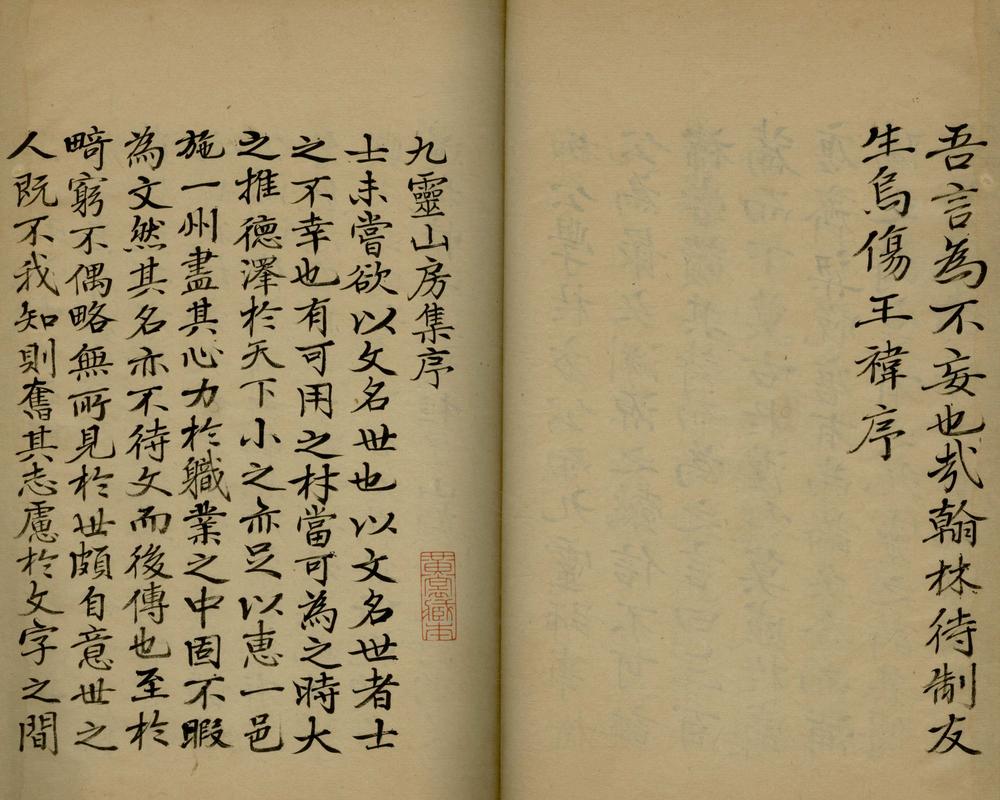 吾言為不妄也哉翰林待制友
生烏傷王禕序
九靈山房集序
士未嘗欲以文名世也以文名世者士
之不幸也有可用之材當可為之時大
之推德澤於天下小之亦足以惠一邑
施一州盡其心力於職業之中固不暇
為文然其名亦不待文而後傳也至於
畸窮不偶略無所見於世頗自意世之
人既不我知則奮其志慮於文字之間